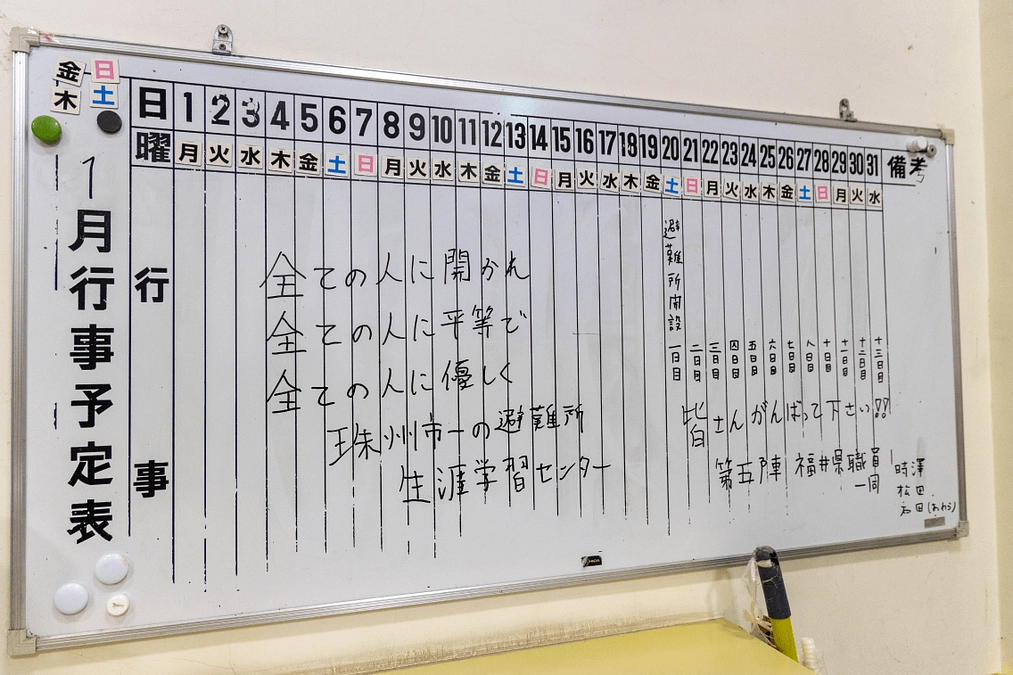 金 日
木 土
1月行事予定表
日 1 2 3 4 5 6 7 8 9 10 11 12 13 14 15 16 17 18 19 20 21 22 23 24 25 26 27 28 29 30 31 備考
曜 月 火 水 木 金 土 日 月 火 水 木 金 土 日 月 火 水 木 金 土 日 月 火 水 木 金 土 日 月 火 水
行事
全ての人に開かれ
全ての人に平等で
全ての人に優しく
珠洲市一の避難所
生涯学習センター
避難所開設
一日目 二日目 三日目 四日目 五日目 六日目 七日目 八日目 十日目 十一日目 十二日目 十三日目
皆さんがんばって下さい!!
第五陣 福井県職員一同
時澤
松田
石田(あわら)